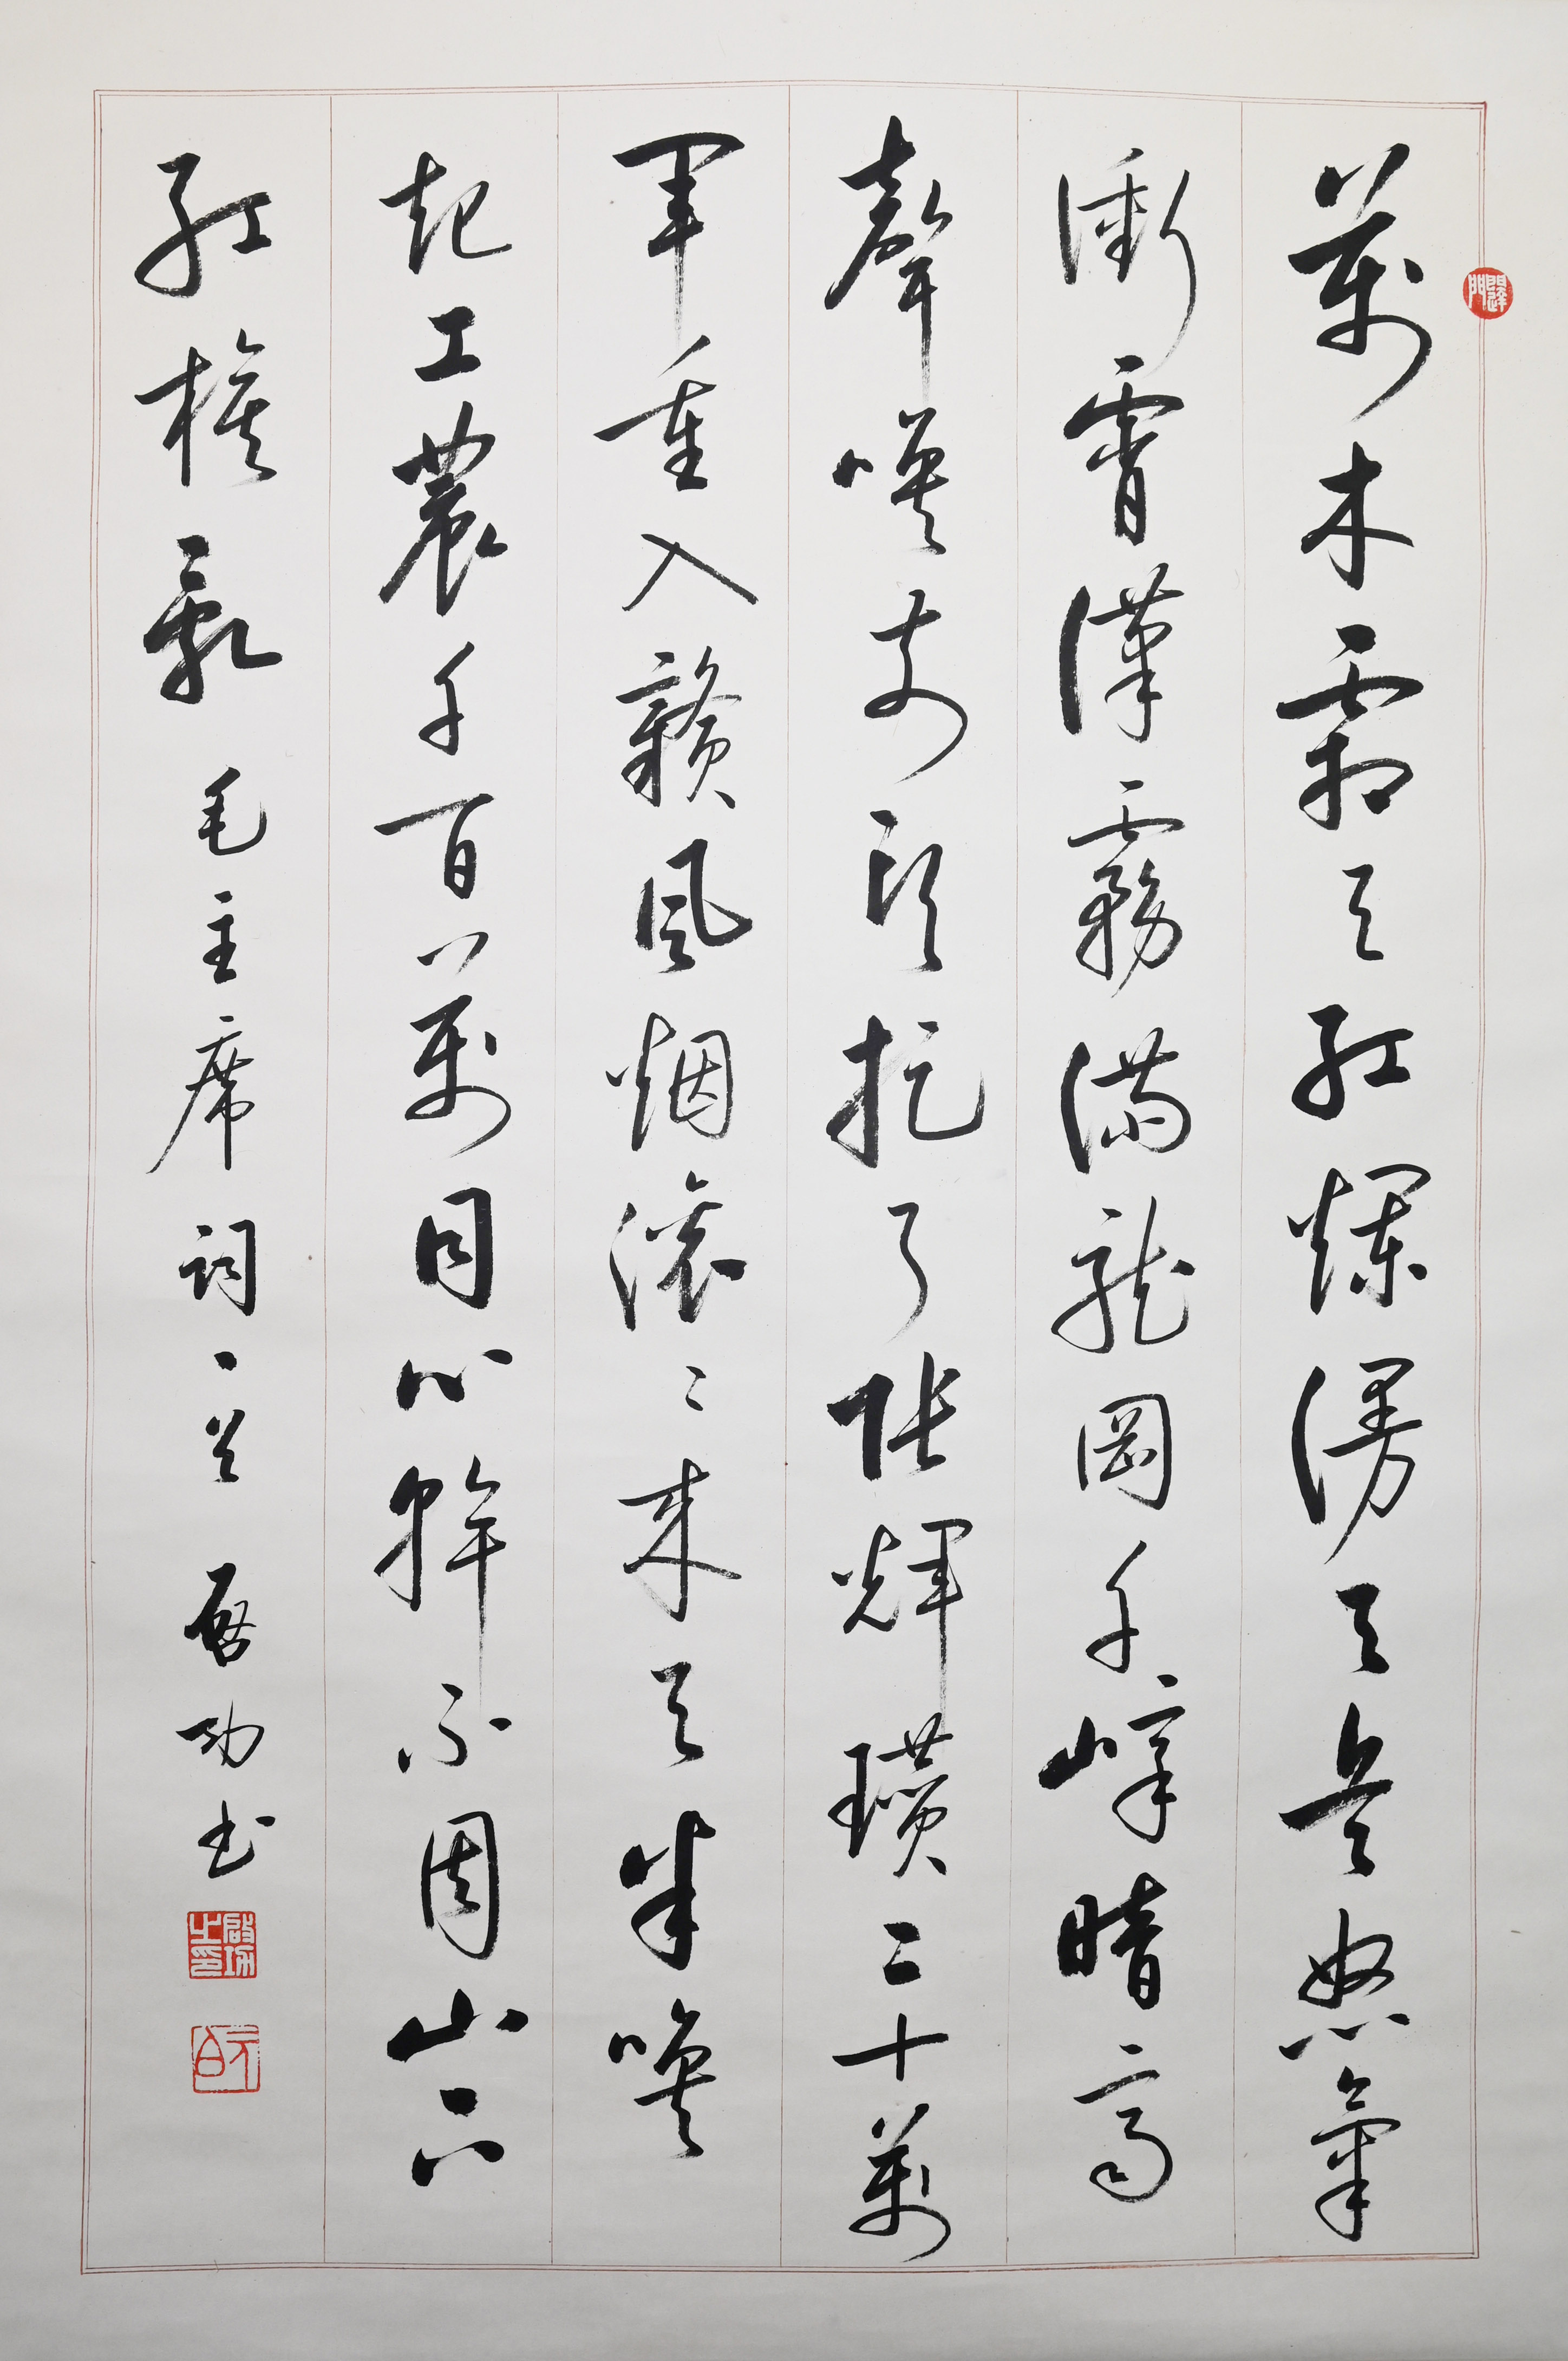 萬木霜天紅爛漫天兵怒氣
衝霄漢霧滿龍岡千嶂暗齊
聲喚前頭捉了張輝瓚二十萬
軍重入贛風烟滚〻来天半喚
起工農千百万萬同心幹不周山下
紅旗亂
毛主席詞一首 啓功書
啟功之印
元白